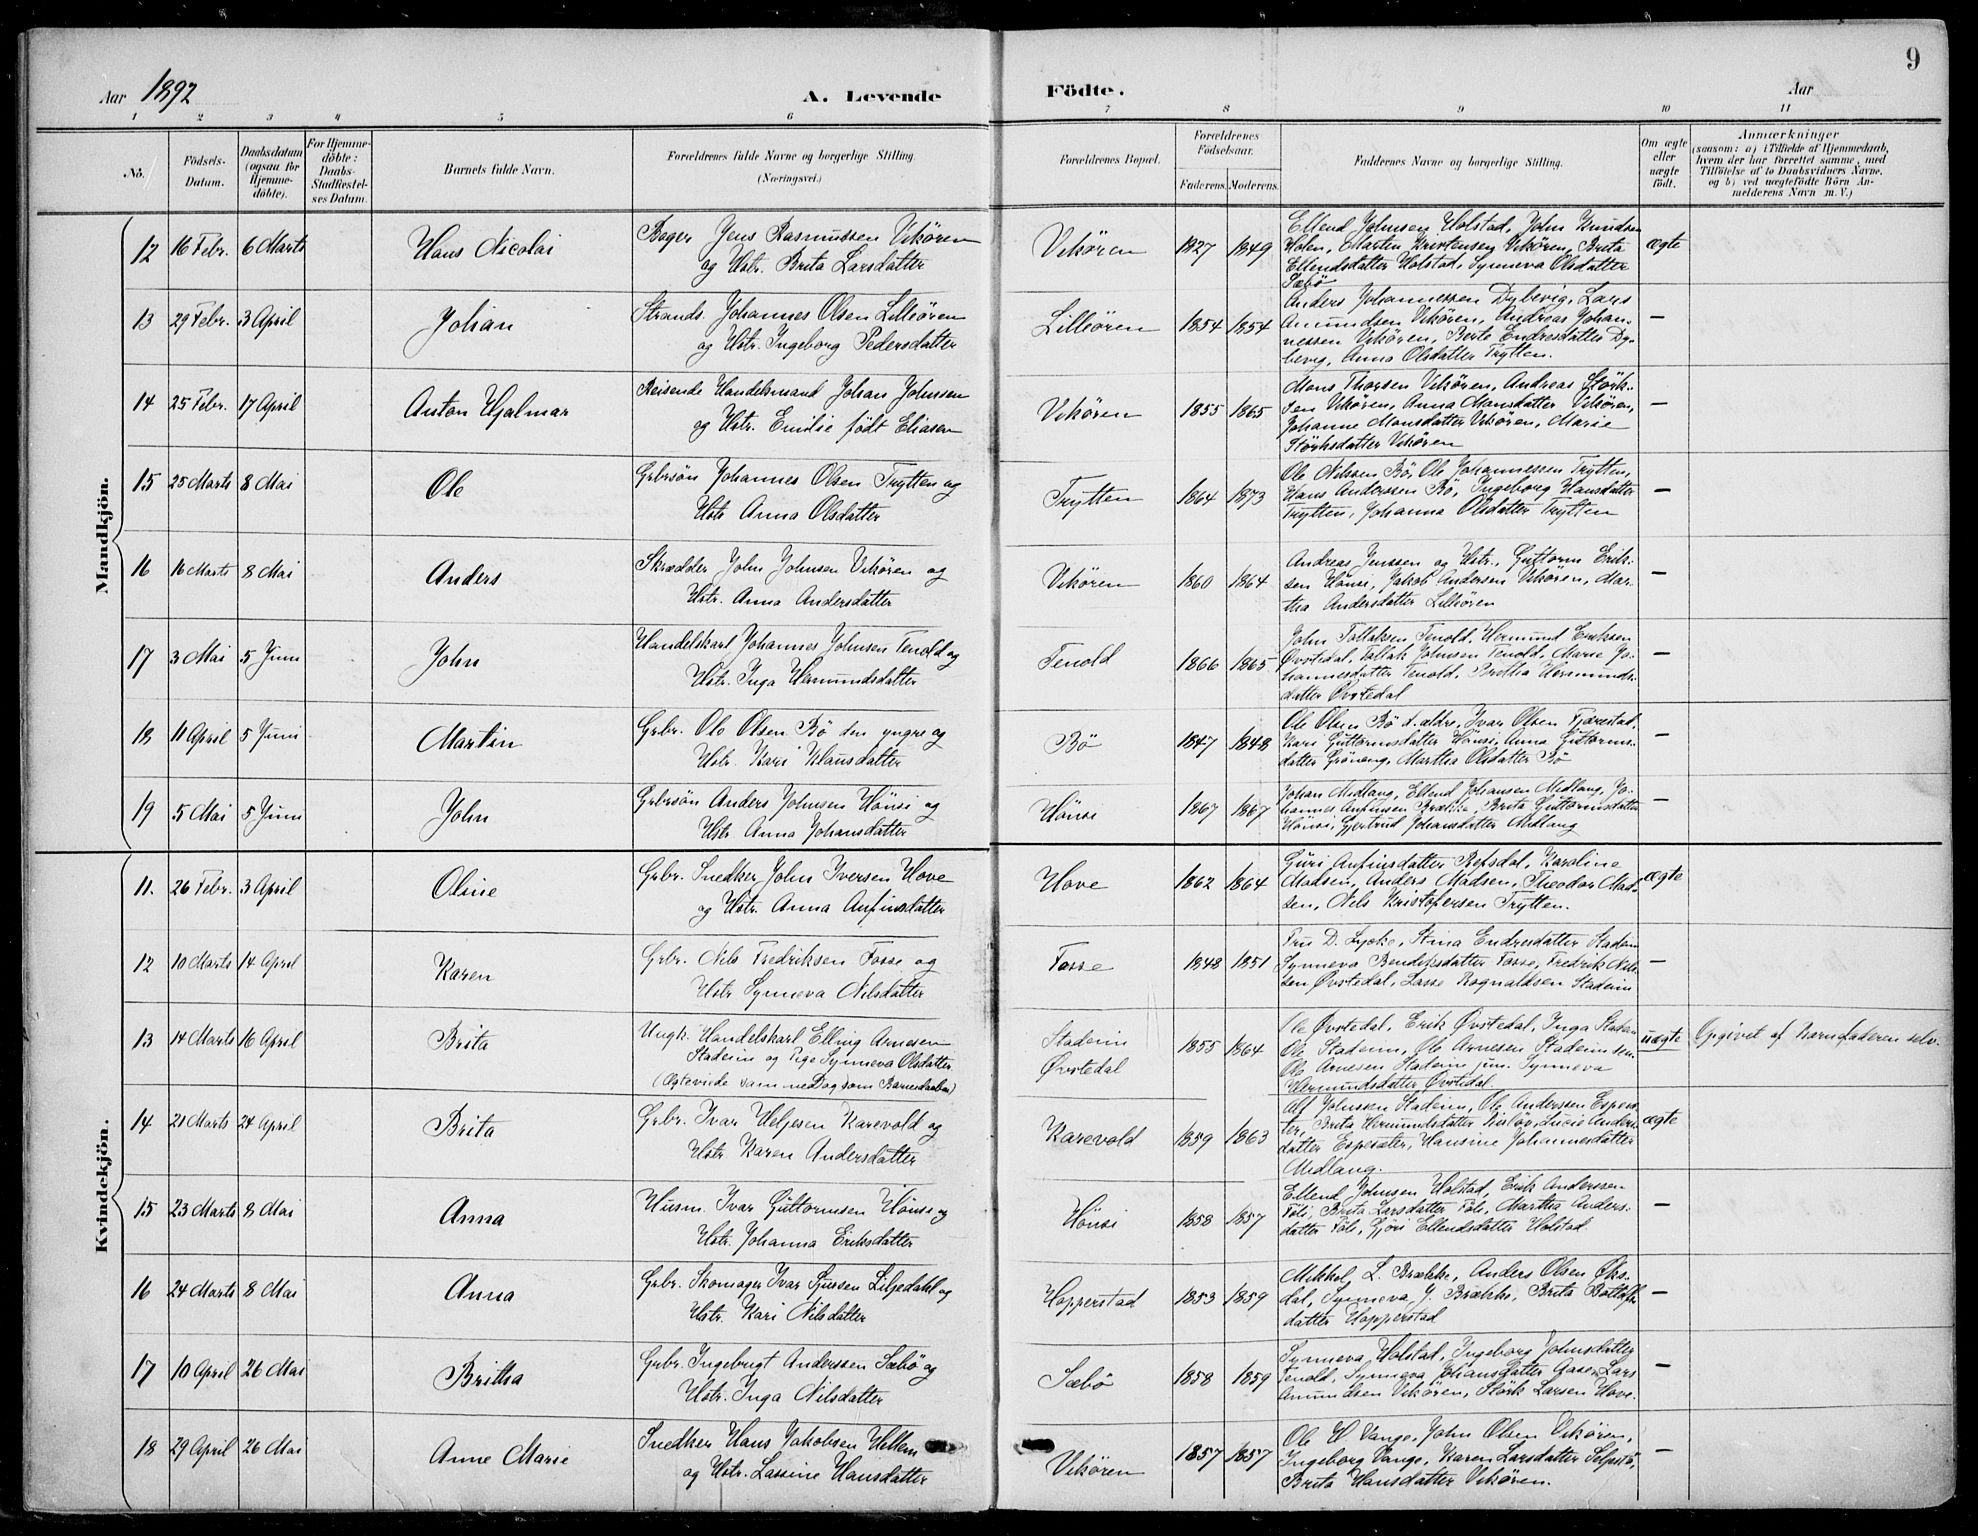 9
Aar 1892
A. Levende Födte.
Aar
1 2 3 4 5 6 7 8 9 10 11
No.
Födsels-Datum.
Daabsdatum (ogsaa for Hjemme-döbte).
For Hjemme-döbte: Daabs-Stadfæstel-ses Datum.
Barnets fulde Navn.
Forældrenes fulde Navne og borgerlige Stilling. (Næringsvei.)
Forældrenes Bopæl.
Forældrenes Födselsaar.
Faderens. Moderens.
Faddernes Navne og borgerlige Stilling.
Om ægte eller uægte födt.
Anmærkninger
(saasom: a) i Tilfælde af Hjemmedaab, hvem der har forrettet samme, med Tilföielse af to Daabsvidners Navne, og b) ved uægtefödte Börn Anmelderens Navn m. V.)
Mandkjön.
12 16 Febr. 6 Marts Hans Nicolai
Bager Jens Rasmussen Vikören
og Hstr. Brita Larsdatter
Vikören 1827 1849
Ellend Johnsen Holstad, John Knudsen
Holen, Martin Kristensen Vikören, Brita
Ellendsdatter Holstad, Synneva Olsdatter
Sæbö
ægte
13 29 Febr. 3 April Johan
Strands. Johannes Olsen Lilleören
og Hstr. Ingeborg Pedersdatter
Lilleören 1854 1854
Anders Johannessen Dybevig, Lars
Amundsen Vikören, Andreas Johan-
nessen Vikören, Berte Endresdatter Dy-
bevig, Anna Olsdatter Trytten.
—
14 25 Febr. 17 April Anton Hjalmar
Reisende Handelsmand Johan Johnsen
og Hstr. Emilie født Eliasen
Vikören 1855 1865
Mons Thorsen Vikören, Andreas Störk-
sen Vikören, Anna Monsdatter Vikören,
Johanne Monsdatter Vikören, Marie
Störksdatter Vikören
—
15 25 Marts 8 Mai Ole
Grbrsön Johannes Olsen Trytten og
Hstr Anna Olsdatter
Trytten 1864 1873
Ole Nilssen Bö, Ole Johannessen Trytten,
Hans Anderssen Bö, Ingeborg Hansdatter
Trytten, Johanna Olsdatter Trytten
—
16 16 Marts 8 Mai Anders
Skrædder John Johnsen Vikören og
Hstr. Anna Andersdatter
Vikören 1860 1864
Andreas Jenssen og Hstr., Guttorm Erik-
sen Hönsi, Jakob Andersen Vikören, Mar-
tha Andersdatter Lilleören
—
17 3 Mai 5 Juni John
Handelskarl Johannes Johnsen Tenold og
Hstr. Inga Hermundsdatter
Tenold 1866 1865
John Tollaksen Tenold, Hermund Eriksen
Övstedal, Tollak Johnsen Tenold, Marie Jo-
hannesdatter Tenold, Britha Hermunds-
datter Övstedal
—
18 11 April 5 Juni Martin
Grbr. Ole Olsen Bö den yngre og
Hstr. Kari Klausdatter
Bö 1847 1848
Ole Olsen Bö d. ældre, Ivar Olsen Fjærestad,
Kari Guttormsdatter Hönsi, Anna Guttorms-
datter Gröneng, Martha Olsdatter Bö
—
19 5 Mai 5 Juni John
Grbrsön Anders Johnsen Hönsi og
Hstr. Anna Johansdatter
Hönsi 1867 1867
Johan Midlang, Ellend Johansen Midlang, Jo-
hannes Anfinsen Brække, Brita Guttormsdatter
Hönsi, Gjertrud Johansdatter Midlang
—
Kvindekjön.
11. 26 Febr. 3 April Oline
Grbr. Snedker John Iversen Hove
og Hstr. Anna Anfinsdatter
Hove 1862 1864
Guri Anfinsdatter Refsdal, Karoline
Madsen, Anders Madsen, Theodor Mad-
sen, Nils Kristofersen Trytten.
ægte
12 10 Marts 14 April Karen
Grbr. Nils Fredriksen Fosse og
Hstr Synneva Nilsdatter
Fosse 1848 1851
Fru D. Lycke, Stina Endresdatter Stadem
Synneva Bendiksdatter Fosse, Fredrik Nils-
sen Övstedal, Lasse Rognaldsen Stadeim
—
13 14 Marts 16 April Brita
Ungk. Handelskarl Elling Arnesen
Stadeim og Pige Synneva Olsdatter
(Ægteviede samme Dag som Barnedaaben)
Stadeim
Övstedal
1855 1864
Ole Övstedal, Erik Övstedal, Inga Stadeim
Ole Stadeim, Ole Arnesen Stadeim sen.
Ole Arnesen Stadeim jun. Synneva
Hermundsdatter Övstedal.
uægte
Opgivet af Barnefaderen selv.
14 21 Marts 24 April Brita
Grbr. Ivar Heljesen Karevold og
Hstr. Karen Andersdatter
Karevold 1859 1863
Alf Johnsen Stadeim, Ole Anderssen Espesæ-
ter, Brita Hermundsdatter Lislöv, Lucie Anders-
datter Espesæter, Hansine Johannesdatter
Midlang.
ægte
15 23 Marts 8 Mai Anna
Husm. Ivar Guttormsen Hönsi og
Hstr. Johanna Eriksdatter
Hönsi 1858 1857
Ellend Johnsen Holstad, Erik Anderssen
Föli, Brita Larsdatter Föli, Martha Anders-
datter Föli, Gjöri Ellendsdatter Holstad.
—
16 24 Marts 8 Mai Anna
Grbr. Skomager Ivar Sjursen Liljedahl og
Hstr. Kari Nilsdatter
Hopperstad 1853 1859
Mikkel L. Brække, Anders Olsen Öks-
dal, Synneva J. Brække, Brita Botolfs-
datter Hopperstad
—
17 10 April 26 Mai Britha
Grbr. Ingebrigt Anderssen Sæbö og
Hstr. Inga Nilsdatter
Sæbö 1858 1859
Synneva Holstad, Ingeborg Johnsdatter
Tenold, Synneva Johansdatter Aase, Lars
Amundsen Vikören, Störk Larsen Hove.
—
18 29 April 26 Mai Anne Marie
Snedker Hans Jakobsen Hellem
og Hstr. Lassine Hansdatter
Vikören 1857 1857
Ole H. Vange, John Olsen Vikören,
Ingeborg Vange, Karen Larsdatter Selseth,
Brita Hansdatter Vikören.
—